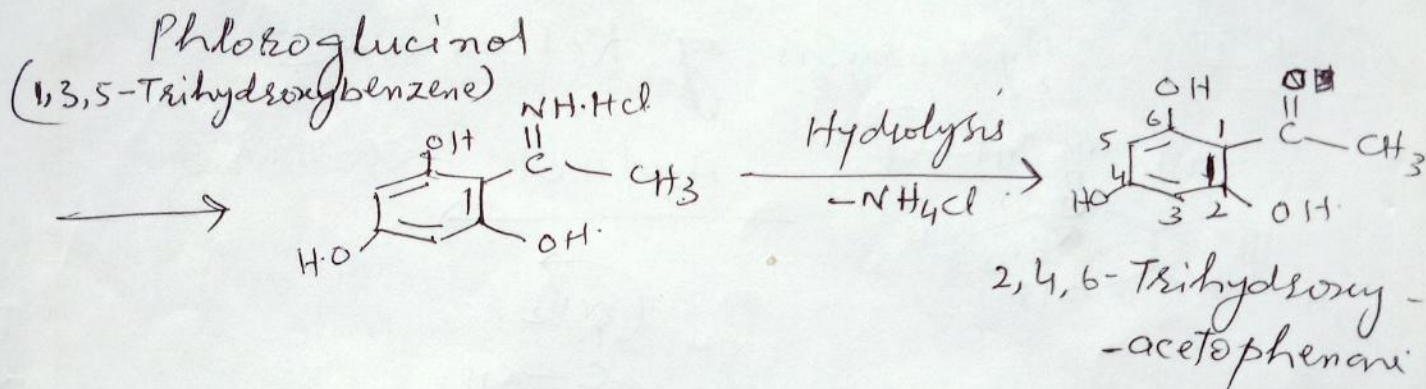 Phloroglucinol
(1,3,5-Trihydroxybenzene)
NH·HCl
OH
C
CH3
H·O
OH·
Hydrolysis
-NH4Cl
OH
O
C
CH3
6
1
5
4
3
2
HO
OH
2,4,6-Trihydroxy-
-acetophenone